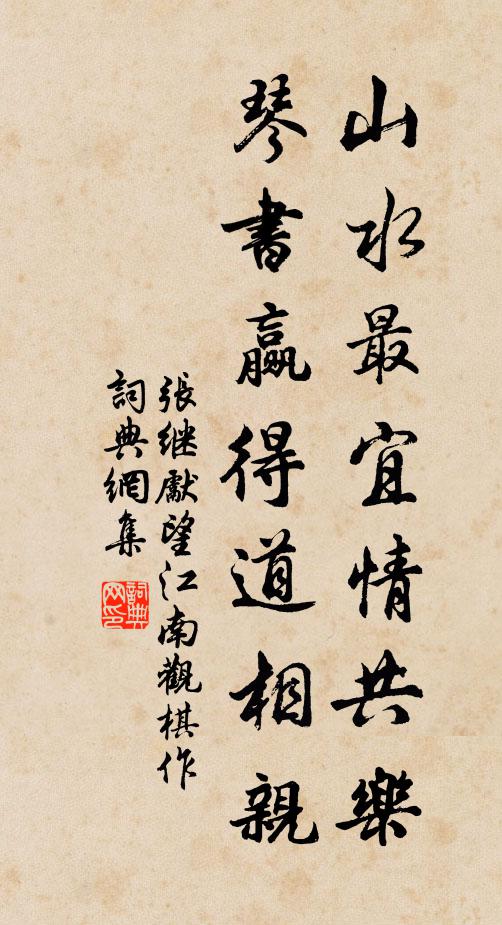 山水最宜情共樂
琴書贏得道相親
張继獻望江南觀棋作
詞典網集
詞典
网印